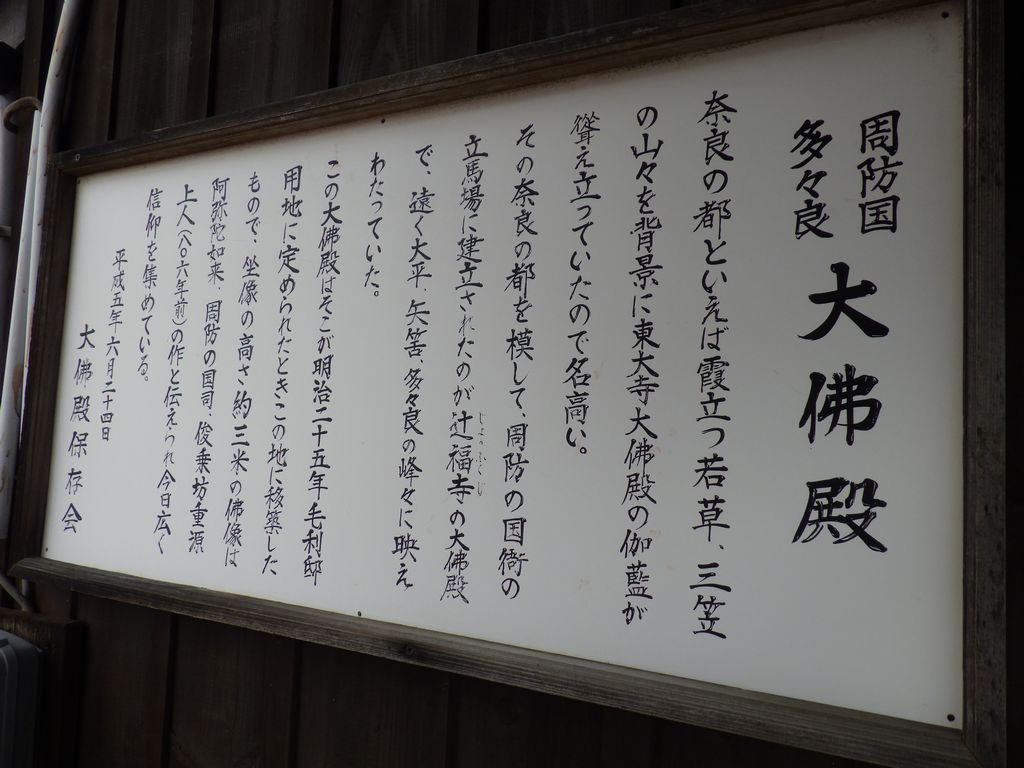 周防国
多々良
大佛殿
奈良の都といえば霞立つ若草、三笠
の山々を背景に東大寺大佛殿の伽藍が
聳え立っていたので名高い。
その奈良の都を模して、周防の国衙の
立馬場に建立されたのが辻福寺の大佛殿
じょうふくじ
で、遠く大平、矢筈、多々良の峰々に映え
わたっていた。
この大佛殿はそこが明治二十五年毛利邸
用地に定められたときこの地に移築した
もので、坐像の高さ約三米の佛像は
阿弥陀如来、周防の国司、俊乗坊重源
上人(八〇六年前)の作と伝えられ今日広く
信仰を集めている。
平成五年六月二十四日
大佛殿保存会